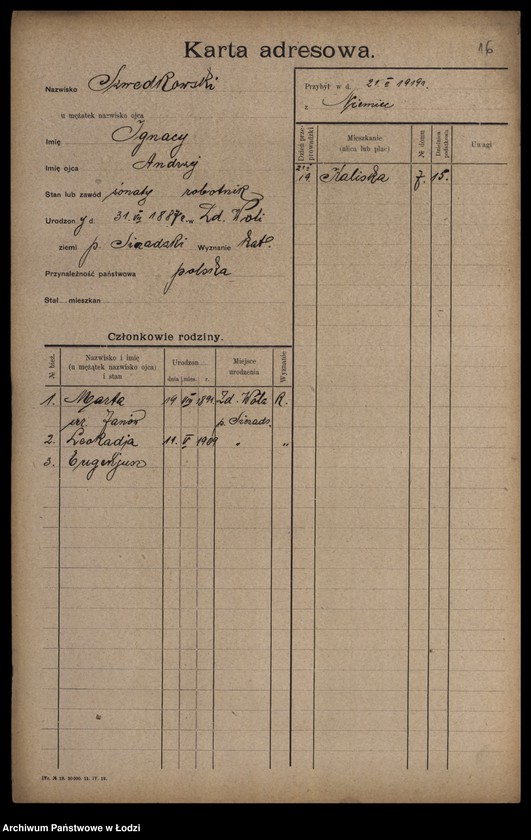 16
Karta adresowa.
Nazwisko Szwedkowski
u mężatek nazwisko ojca
Imię Ignacy
Imię ojca Andrzej
Stan lub zawód żonaty robotnik
Urodzony d. 31. VII 1887 r. w Zd. Woli
ziemi p. Sieradzki Wyznanie kat.
Przynależność państwowa polska
Stał. mieszkan.
Przybył w d. 21. II 1919 r.
z Niemiec
Dzień przeprowadzki
Mieszkanie (ulica lub plac)
№ domu
Dzielnica podatkowa
Uwagi
19 Kaliska 7. 15.
Członkowie rodziny.
№ bież.
Nazwisko i imię
(u mężatek nazwisko ojca)
i stan
Urodzon
dnia mies. r.
Miejsce urodzenia
Wyznanie
1. Marta 19 VII 1891 Zd. Wola R.
urz. Janów p. Sierads.
2. Leokadja 11. V 1909 " "
3. Eugenjusz
Archiwum Państwowe w Łodzi